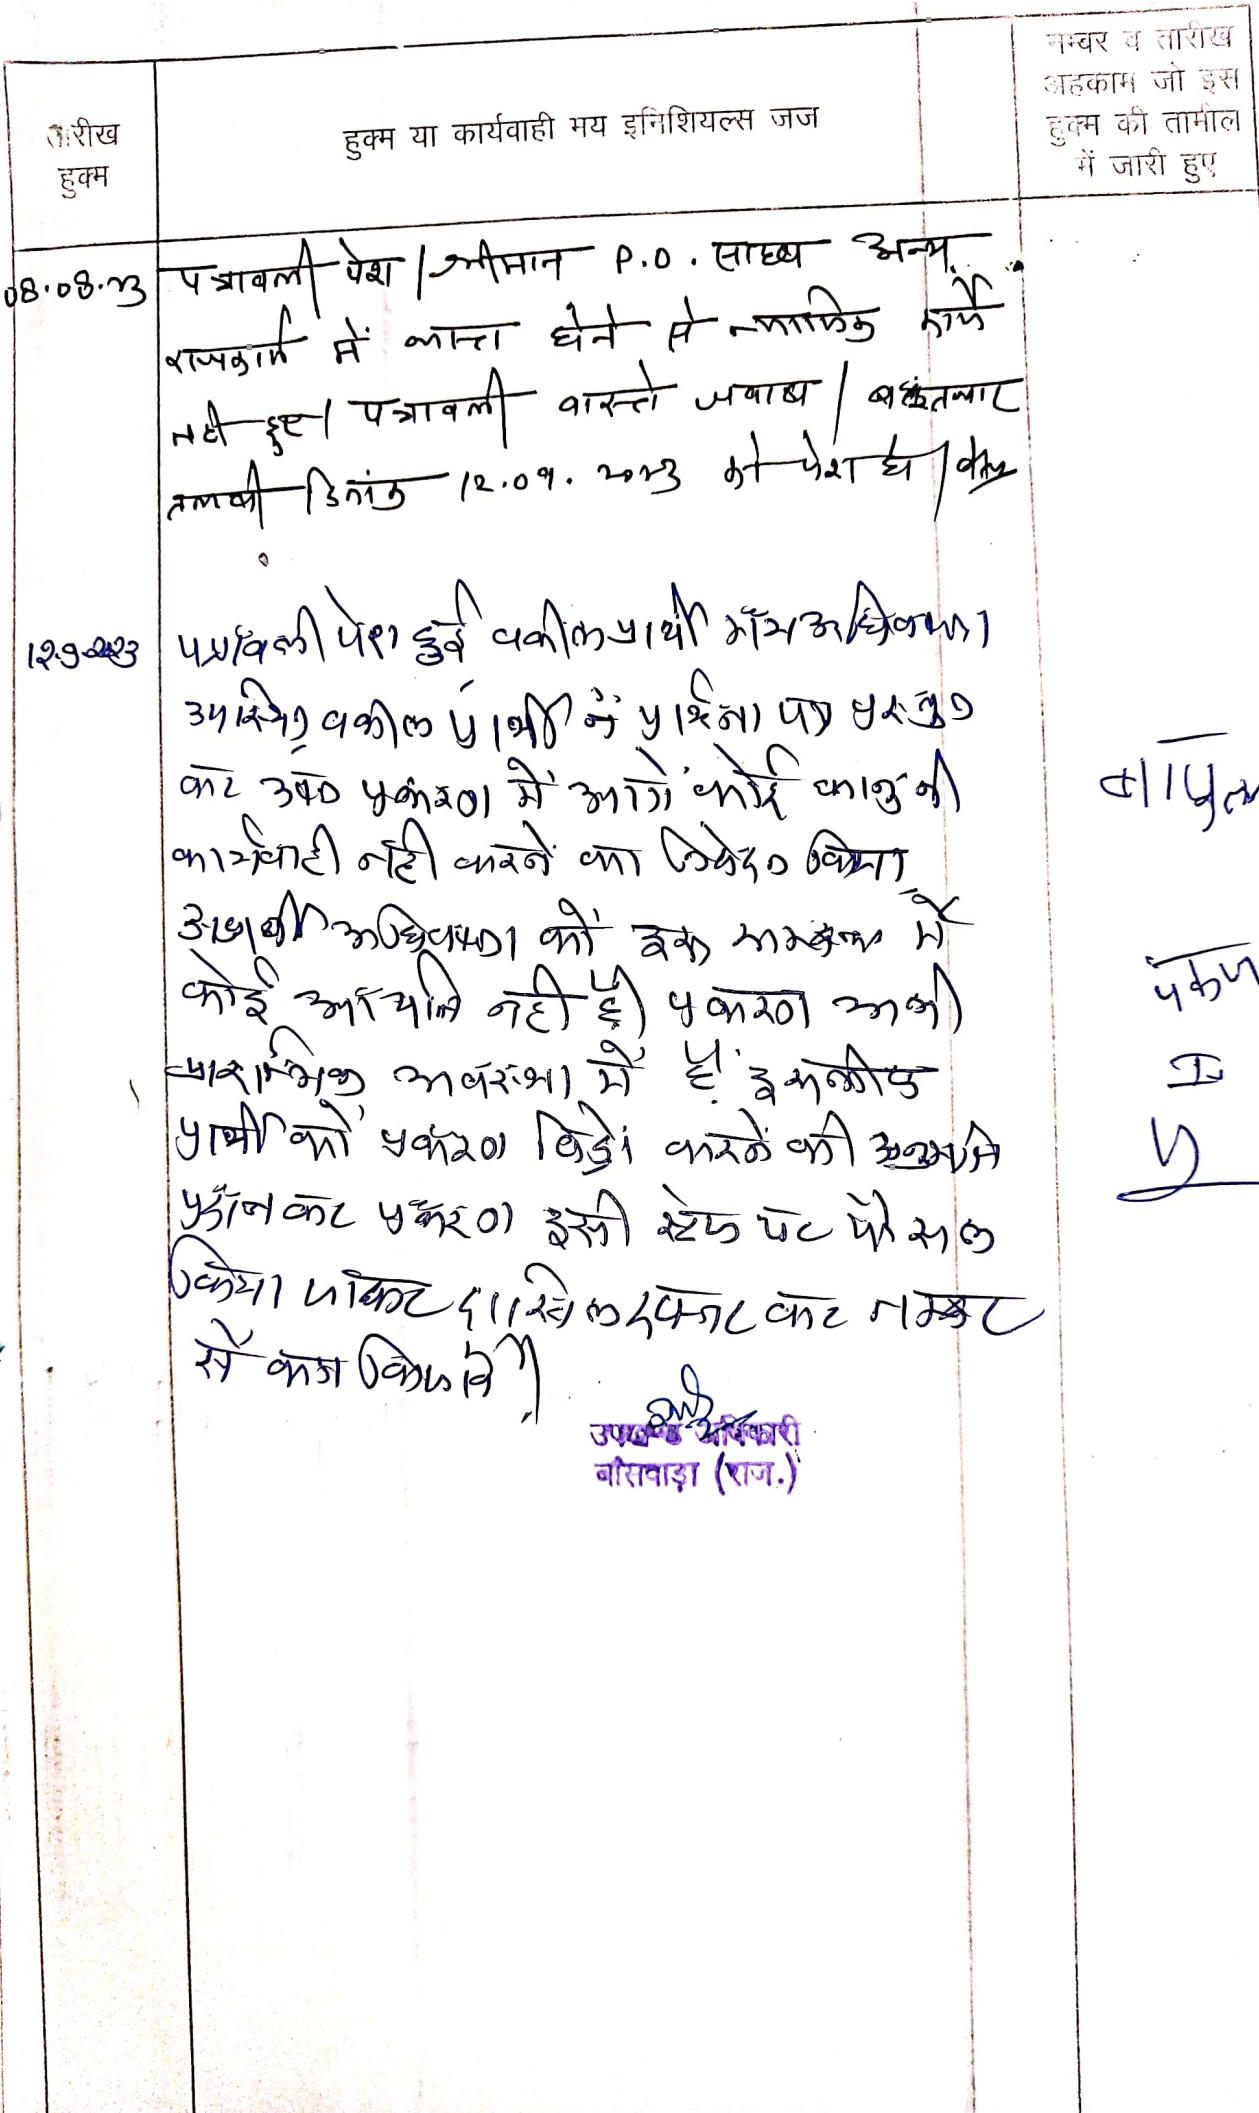 तारीख
हुक्म
हुक्म या कार्यवाही मय इनिशियल्स जज
नम्बर व तारीख
अहकाम जो इस
हुक्म की तामील
में जारी हुए
08.08.23
पत्रावली पेश / श्रीमान P.O. साहब अन्य
राजकार्य में व्यस्त होने से न्यायिक कार्य
नही हुए / पत्रावली वास्ते जवाब /
तलबी दिनांक 12.09.2023 को पेश हो /
12.9.2023
पत्रावली पेश हुई वकील प्रार्थी मय अधिवक्ता
उपस्थित वकील प्रार्थी ने प्रार्थना पत्र प्रस्तुत
कर उक्त प्रकरण में आगे कोई कानुनी
कार्यवाही नही करने का निवेदन किया
अप्रार्थी अधिवक्ता को इस सम्बन्ध में
कोई आपत्ति नही है प्रकरण अभी
प्रारम्भिक अवस्था में है इसलीए
प्रार्थी को प्रकरण विड्रो करने की अनुमति
प्रदान कर प्रकरण इसी स्टेज पर फैसल
किया जाकर दाखिल दफ्तर कर नम्बर
से कम किया जावे
उपखण्ड अधिकारी
बांसवाड़ा (राज.)